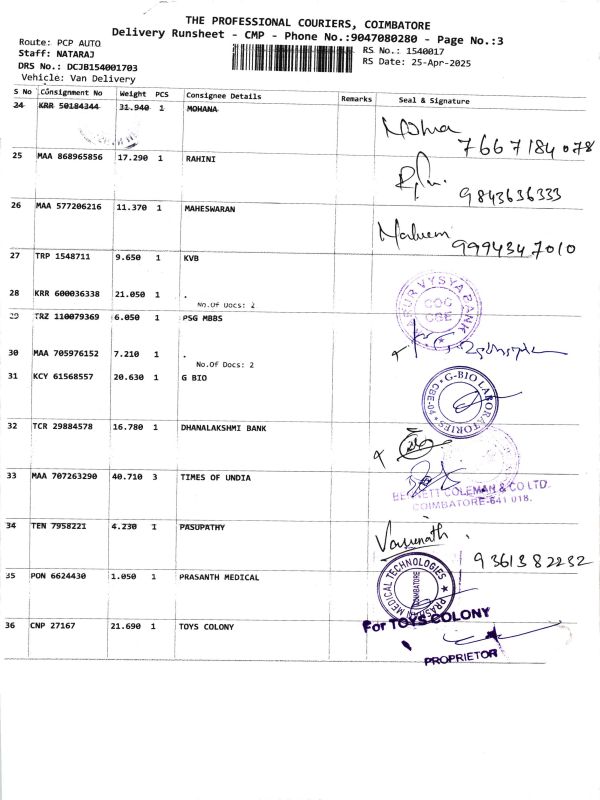 THE PROFESSIONAL COURIERS, COIMBATORE
Delivery Runsheet - CMP - Phone No.:9047080280 - Page No.:3
Route: PCP AUTO
Staff: NATARAJ
DRS No.: DCJB154001703
Vehicle: Van Delivery
RS No.: 1540017
RS Date: 25-Apr-2025
S No Consignment No Weight PCS Consignee Details Remarks Seal & Signature
24 KRR 50184344 31.940 1 MOHANA
Mohna
7667184078
25 MAA 868965856 17.290 1 RAHINI
9843636333
26 MAA 577206216 11.370 1 MAHESWARAN
9994347010
27 TRP 1548711 9.650 1 KVB
KARUR VYSYA BANK
CBE
28 KRR 600036338 21.050 1 .
No.Of Docs: 2
29 TRZ 110079369 6.050 1 PSG MBBS
30 MAA 705976152 7.210 1 .
No.Of Docs: 2
31 KCY 61568557 20.630 1 G BIO
G-BIO LABORATORIES
CBE-04
32 TCR 29884578 16.780 1 DHANALAKSHMI BANK
33 MAA 707263290 40.710 3 TIMES OF UNDIA
BENNETT COLEMAN & CO LTD.
COIMBATORE-641 018.
34 TEN 7958221 4.230 1 PASUPATHY
9361382232
35 PON 6624430 1.050 1 PRASANTH MEDICAL
MEDICAL TECHNOLOGIES
COIMBATORE
36 CNP 27167 21.690 1 TOYS COLONY
For TOYS COLONY
PROPRIETOR